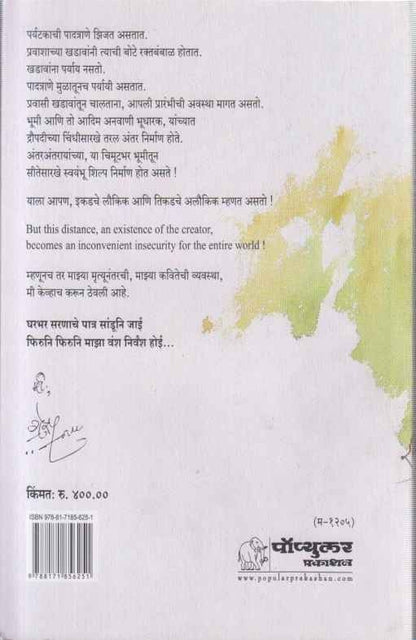 पर्यटकाची पादत्राणे झिजत असतात.
प्रवाशाच्या खडावांनी त्याची बोटे रक्तबंबाळ होतात.
खडावांना पर्याय नसतो.
पादत्राणे मुळातूनच पर्यायी असतात.
प्रवासी खडावांतून चालताना, आपली प्रारंभीची अवस्था मागत असतो.
भूमी आणि तो आदिम अनवाणी भूधारक, यांच्यात
द्रौपदीच्या चिंधीसारखे तरल अंतर निर्माण होते.
अंतरअंतरायांच्या, या चिमूटभर भूमीतून
सीतेसारखे स्वयंभू शिल्प निर्माण होत असते !
याला आपण, इकडचे लौकिक आणि तिकडचे अलौकिक म्हणत असतो !
But this distance, an existence of the creator,
becomes an inconvenient insecurity for the entire world !
म्हणूनच तर माझ्या मृत्यूनंतरची, माझ्या कवितेची व्यवस्था,
मी केव्हाच करून ठेवली आहे.
घरभर सरणाचे पात्र सांडूनि जाई
फिरुनि फिरुनि माझा वंश निर्वंश होई...
किंमत: रु. ४००.००
ISBN 978-81-7185-625-1
9788171856251
(म-१२०५)
पॉप्युलर
प्रकाशन
www.popularprakashan.com